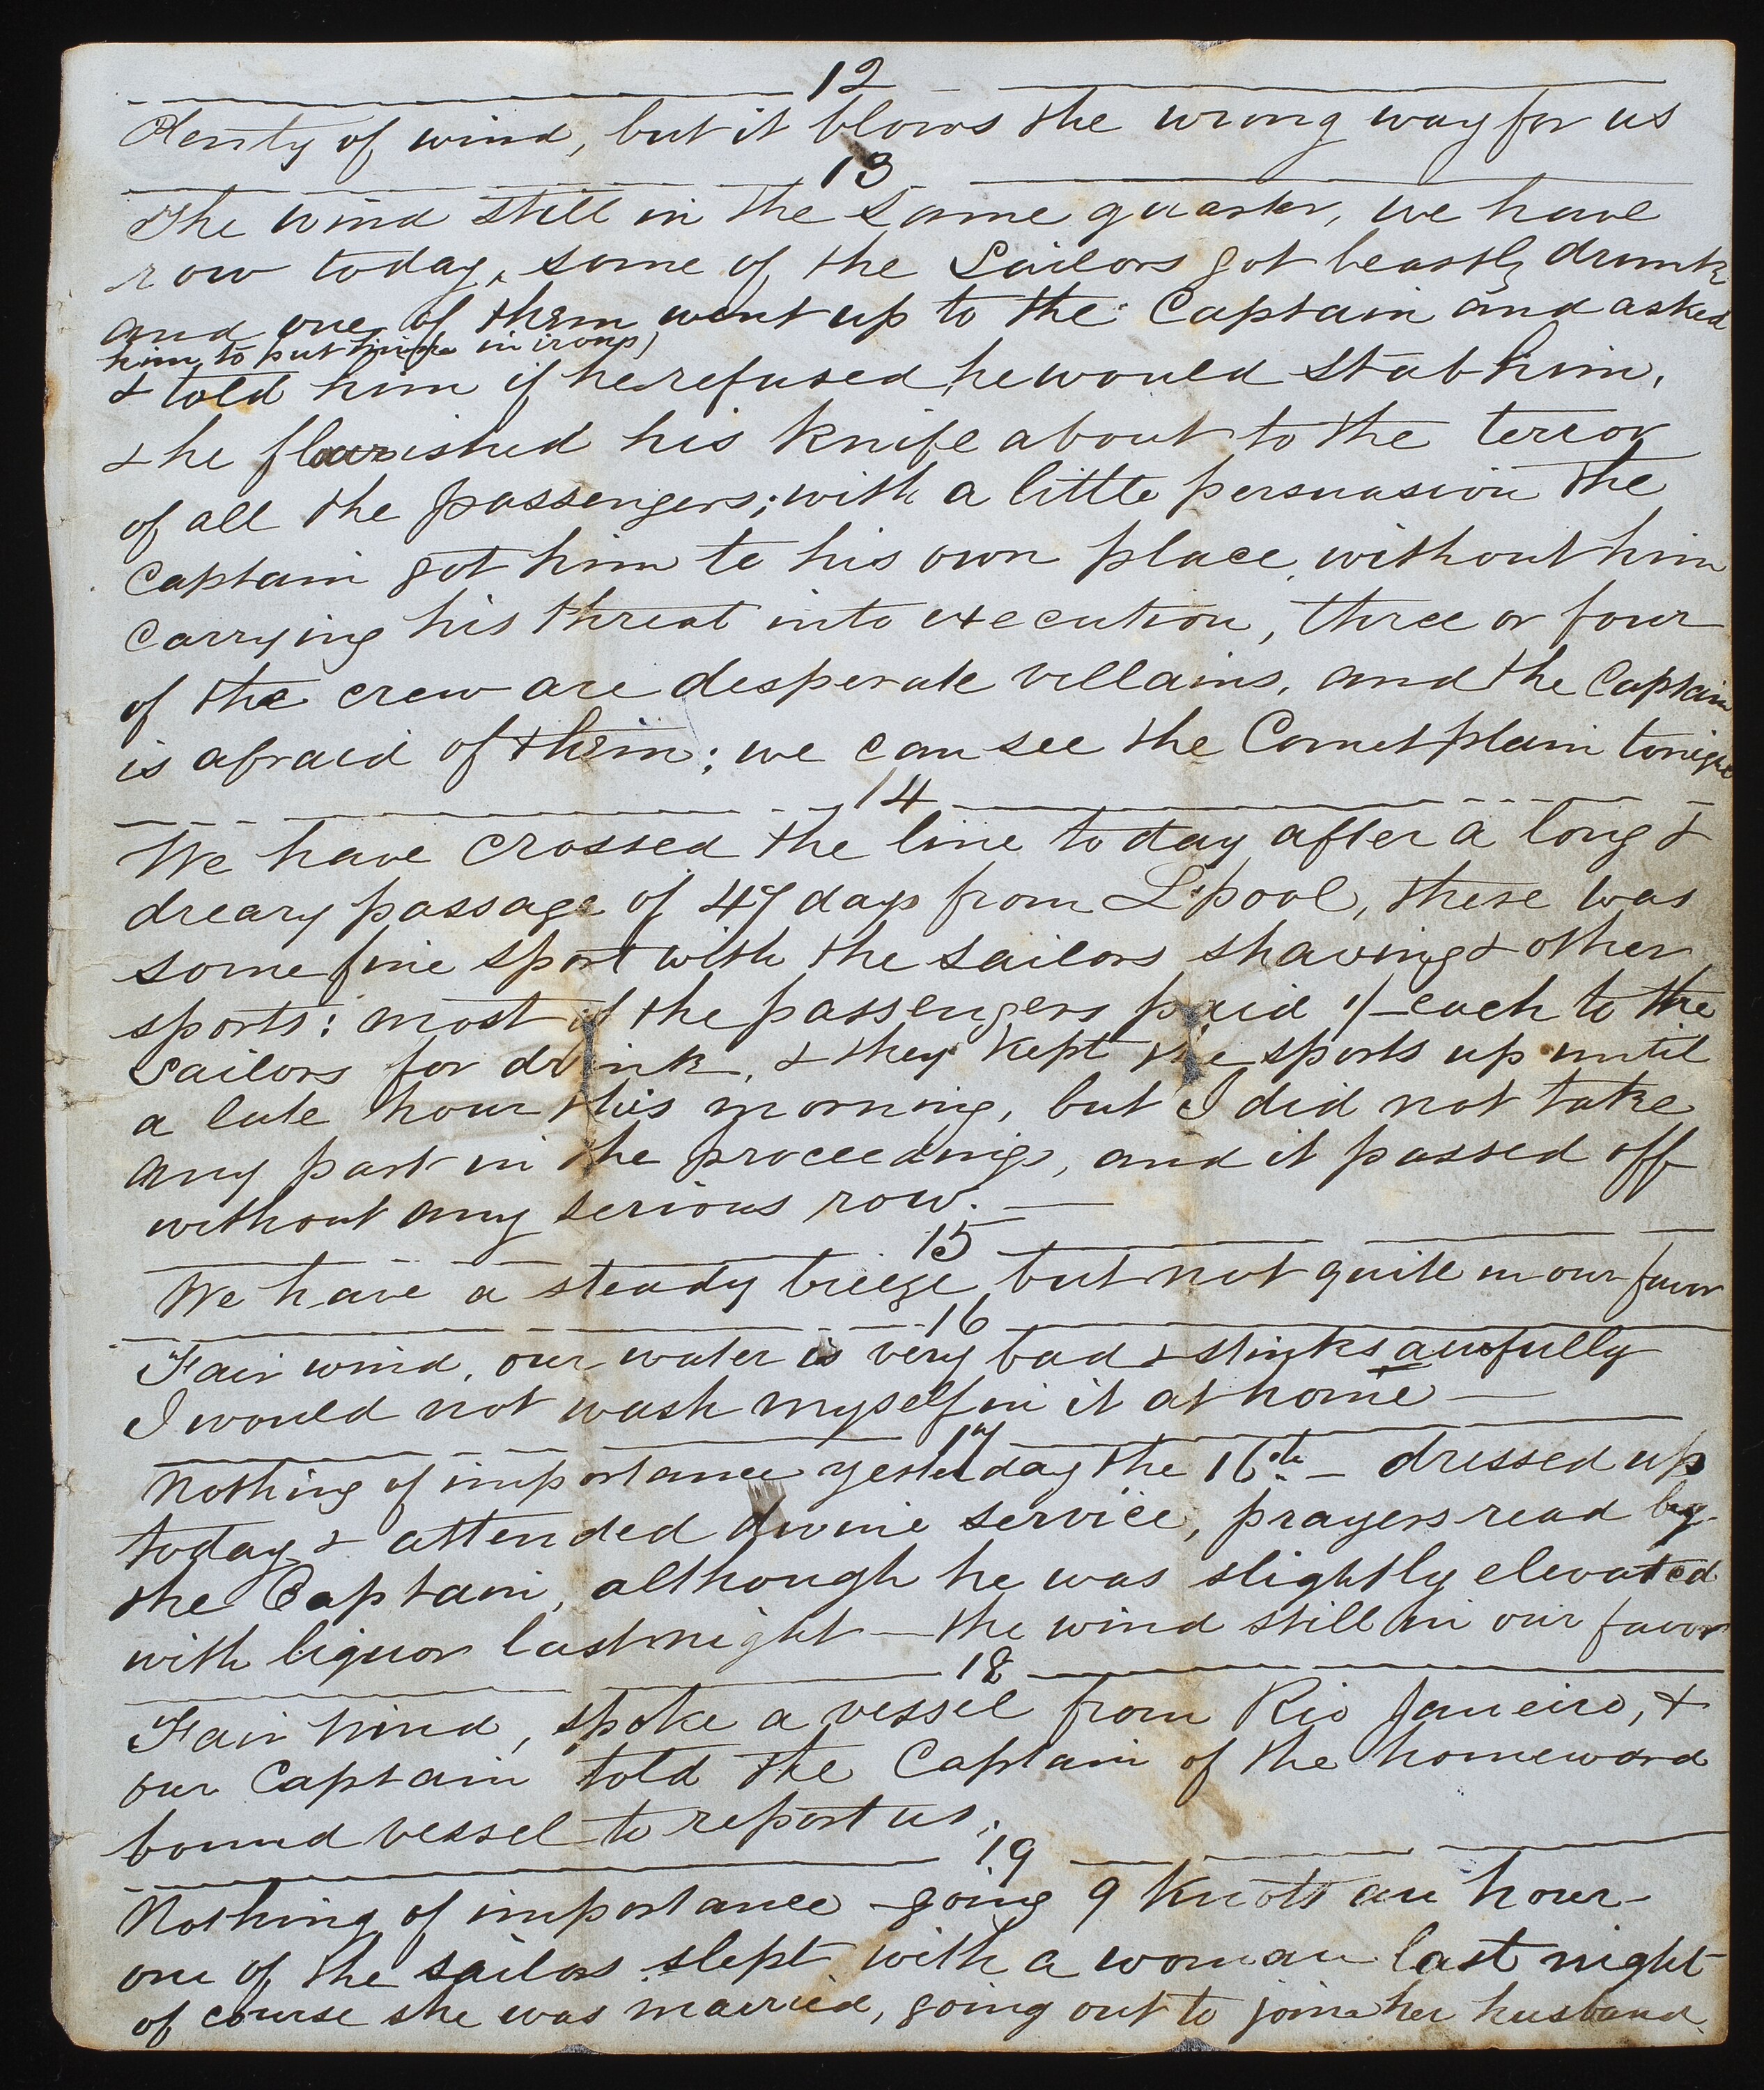 12
Plenty of wind, but it blows the wrong way for us
13
The wind still in the same quarter, we have
row today, some of the Sailors got beastly drunk
and one of them went up to the Captain and asked
him to put him in irons,
& told him if he refused, he would stab him,
& he flourished his knife about to the terror
of all the passengers; with a little persuasion the
Captain got him to his own place, without him
carrying his threat into execution, three or four
of the crew are desperate villains, and the Captain
is afraid of them; we can see the Comet plain tonight
14
We have crossed the line today after a long &
dreary passage of 47 days from L'pool, there was
some fine sport with the sailors shaving & other
sports: most of the passengers paid 1/- each to the
Sailors for drink, & they kept the sports up until
a late hour this morning, but I did not take
any part in the proceedings, and it passed off
without any serious row. —
15
We have a steady breeze but not quite in our favor
16
Fair wind, our water is very bad & stinks awfully
I would not wash myself in it at home —
17
Nothing of importance yesterday the 16th — dressed up
today & attended divine service, prayers read by
the Captain, although he was slightly elevated
with liquor last night — the wind still in our favor
18
Fair wind, spoke a vessel from Rio Janeiro, &
our Captain told the Captain of the homeward
bound vessel to report us.
19
Nothing of importance going 9 knots an hour —
one of the sailors slept with a woman last night
of course she was married, going out to join her husband.